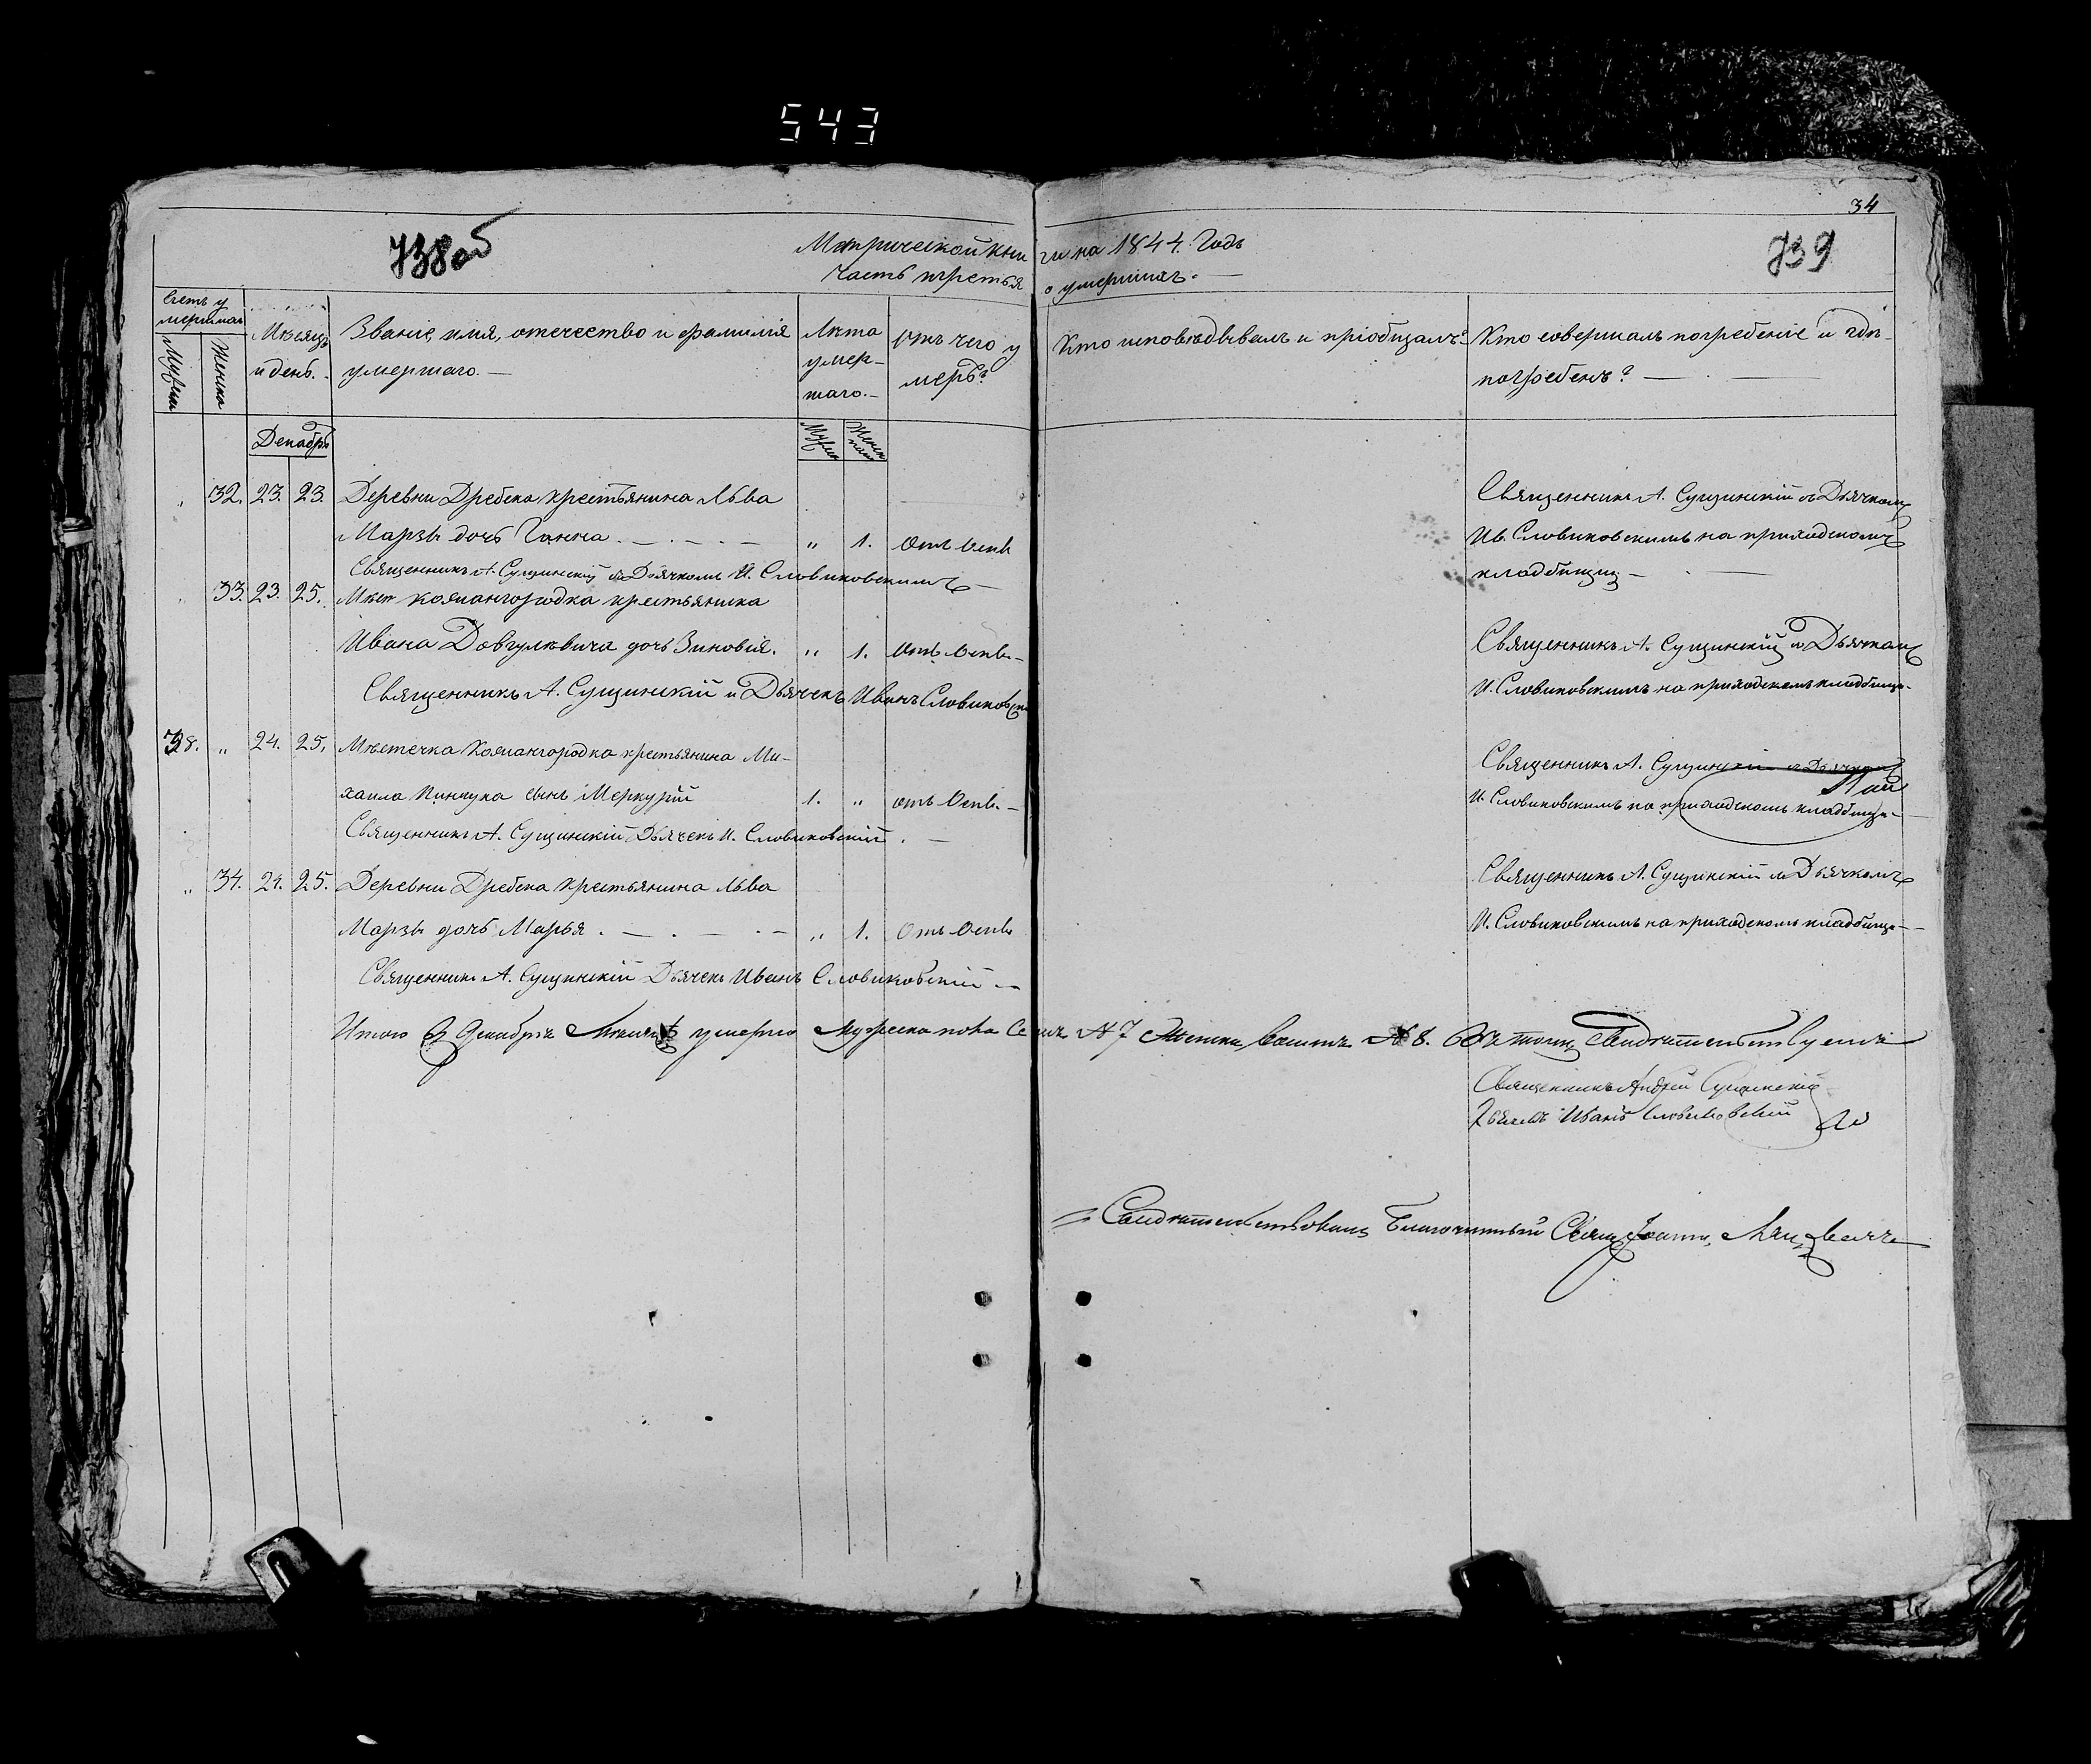 543
34
738об
739
Метрической книги на 1844. Годъ
Часть третья о умершихъ.
Счетъ умершихъ
Мужеск
Женска
Мѣсяцъ и день.
Званіе, имя, отечество и фамилія умершаго.
Лѣта умершаго.
Отъ чего умеръ?
Кто исповѣдывалъ и пріобщалъ?
Кто совершалъ погребеніе и гдѣ погребенъ?
Декабрь
Мужеск
Женск
32. 23. 23. Деревни Дребска крестьянина Льва
Марзы дочь Ганна. „ 1. Отъ Оспы
Священникъ А. Сущинскій съ Дьячкомъ
Ив. Словиковскимъ на приходскомъ
кладбищѣ
Священникъ А. Сущинскій съ Дьячкомъ И. Словиковскимъ
33. 23. 25. Мѣст. Кожангородка крестьянина
Ивана Довгулевича дочь Зиновія. „ 1. Отъ Оспы
Священникъ А. Сущинскій съ Дьячкомъ
И. Словиковскимъ на приходскомъ кладбищѣ
Священникъ А. Сущинскій и Дьячекъ Иванъ Словиковскій
38. „ 24. 25. Мѣстечка Кожангородка крестьянина Ми-
хаила Пинчука сынъ Меркурій 1. „ отъ Оспы
Священникъ А. Сущинскій съ Дьячкомъ
И. Словиковскимъ на приходскомъ кладбищѣ
Священникъ А. Сущинскій Дьячекъ И. Словиковскій
„ 34. 24. 25. Деревни Дребска крестьянина Льва
Марзы дочь Марья. „ 1. Отъ Оспы
Священникъ А. Сущинскій съ Дьячкомъ
И. Словиковскимъ на приходскомъ кладбищѣ
Священникъ А. Сущинскій Дьячекъ Иванъ Словиковскій
Итого въ Декабрѣ Мѣсяцѣ умерло Мужеска пола Семь № 7 Женска восемь № 8. Въ томъ свидѣтельствуемъ
Священникъ Андрей Сущинскій
Дьячекъ Иванъ Словиковскій
Свидѣтельствовалъ Благочинный Священ. Іоаннъ